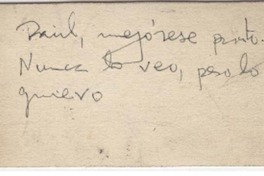 Raúl, mejórese pronto.
Nunca lo veo, pero lo
quiero